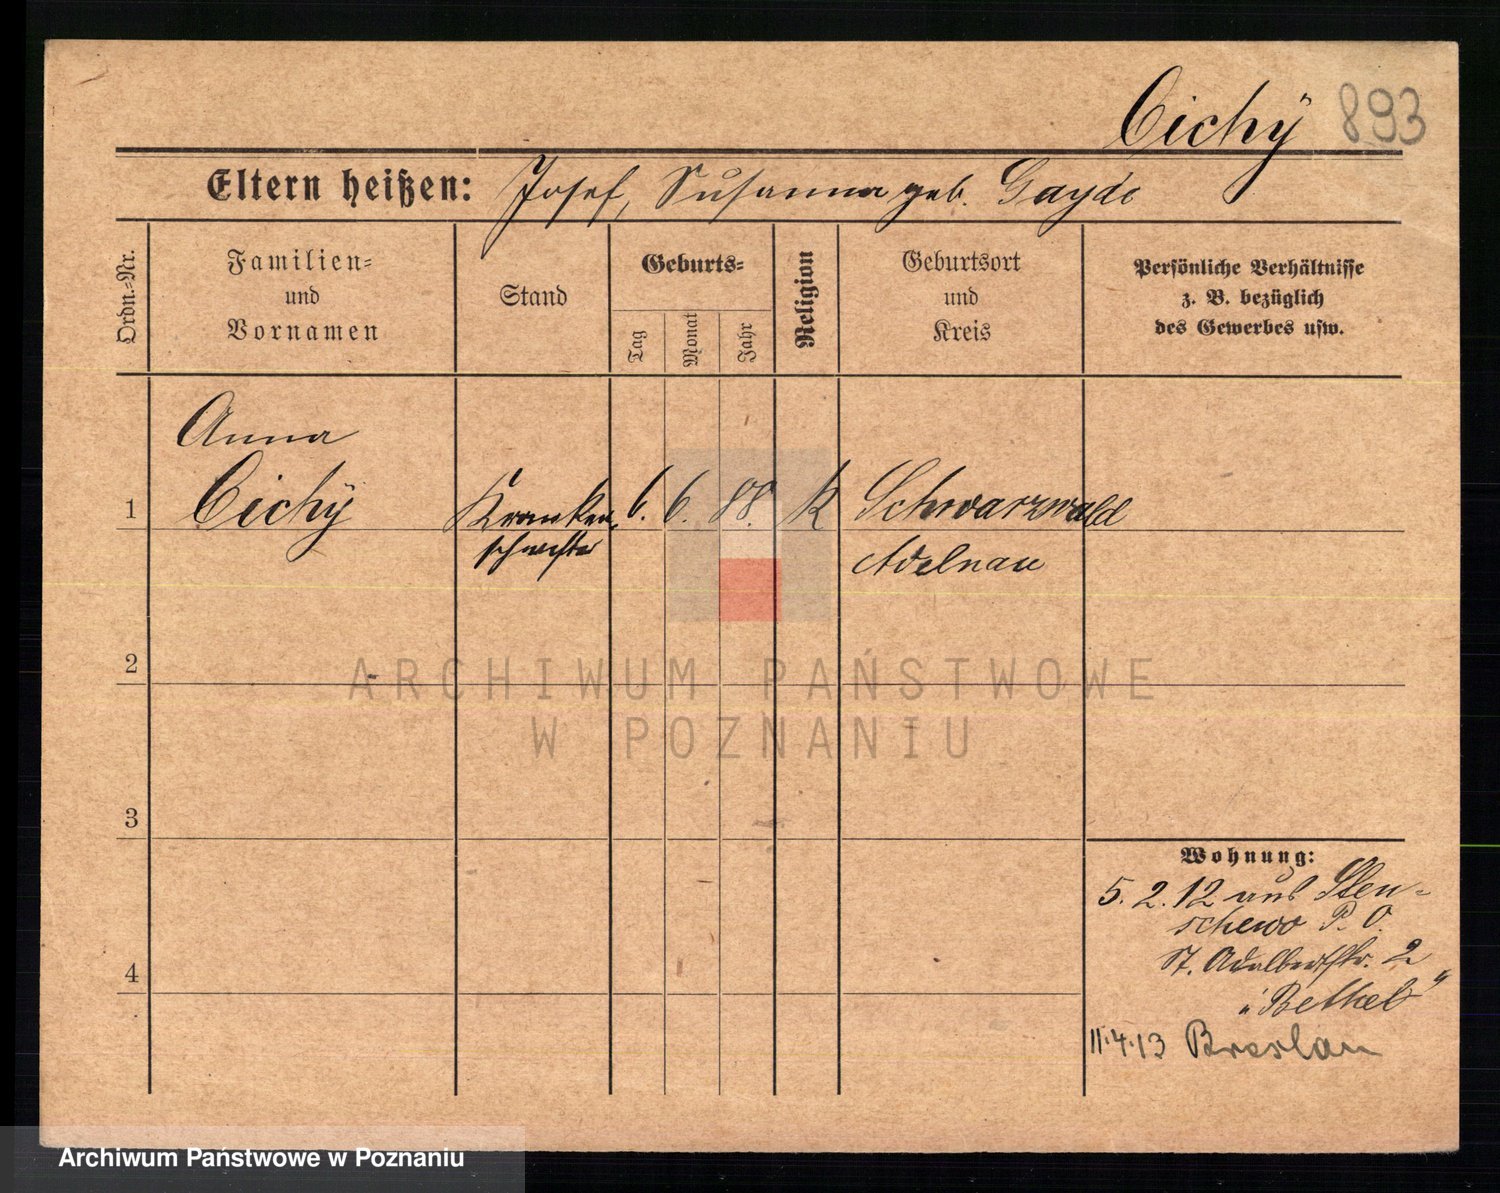 Cichÿ 893
Eltern heißen: Josef, Susanna geb. Gayde
Ordn.-Nr.
Familien-
und
Vornamen
Stand
Geburts-
Tag
Monat
Jahr
Religion
Geburtsort
und
Kreis
Persönliche Verhältnisse
z. B. bezüglich
des Gewerbes usw.
Anna
1 Cichÿ Kranken- 6. 6. 88. K Schwarzwald
schwester Adelnau
2
ARCHIWUM PAŃSTWOWE
W POZNANIU
3
Wohnung:
5. 2. 12 aus Sten-
schewo P. O.
4 St. Adalbertstr. 2
"Bethel"
11.4.13 Breslau
Archiwum Państwowe w Poznaniu